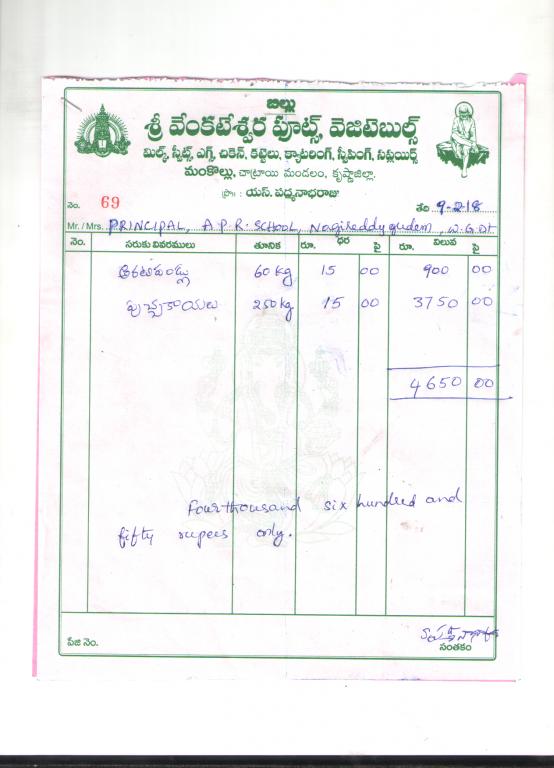 బిల్లు
శ్రీ వేంకటేశ్వర ఫ్రూట్స్, వెజిటెబుల్స్
మిల్క్, స్వీట్స్, ఎగ్స్, చికెన్, కట్టెలు, క్యాటరింగ్, స్వీపింగ్, సప్లయర్స్
మంకొల్లు, చాట్రాయి మండలం, కృష్ణాజిల్లా.
ప్రొ: యస్. పద్మనాభరాజు
నెం. 69 తేది 9-2-18
Mr. / Mrs. PRINCIPAL, A.P.R. SCHOOL, Nagireddygudem, W.G.Dt
నెం. సరుకు వివరములు తూనిక రూ. ధర పై రూ. విలువ పై
అరటిపండ్లు 60 kg 15 00 900 00
పుచ్చకాయలు 250 kg 15 00 3750 00
4650 00
Four thousand six hundred and
fifty rupees only.
పేజి నెం. సంతకం